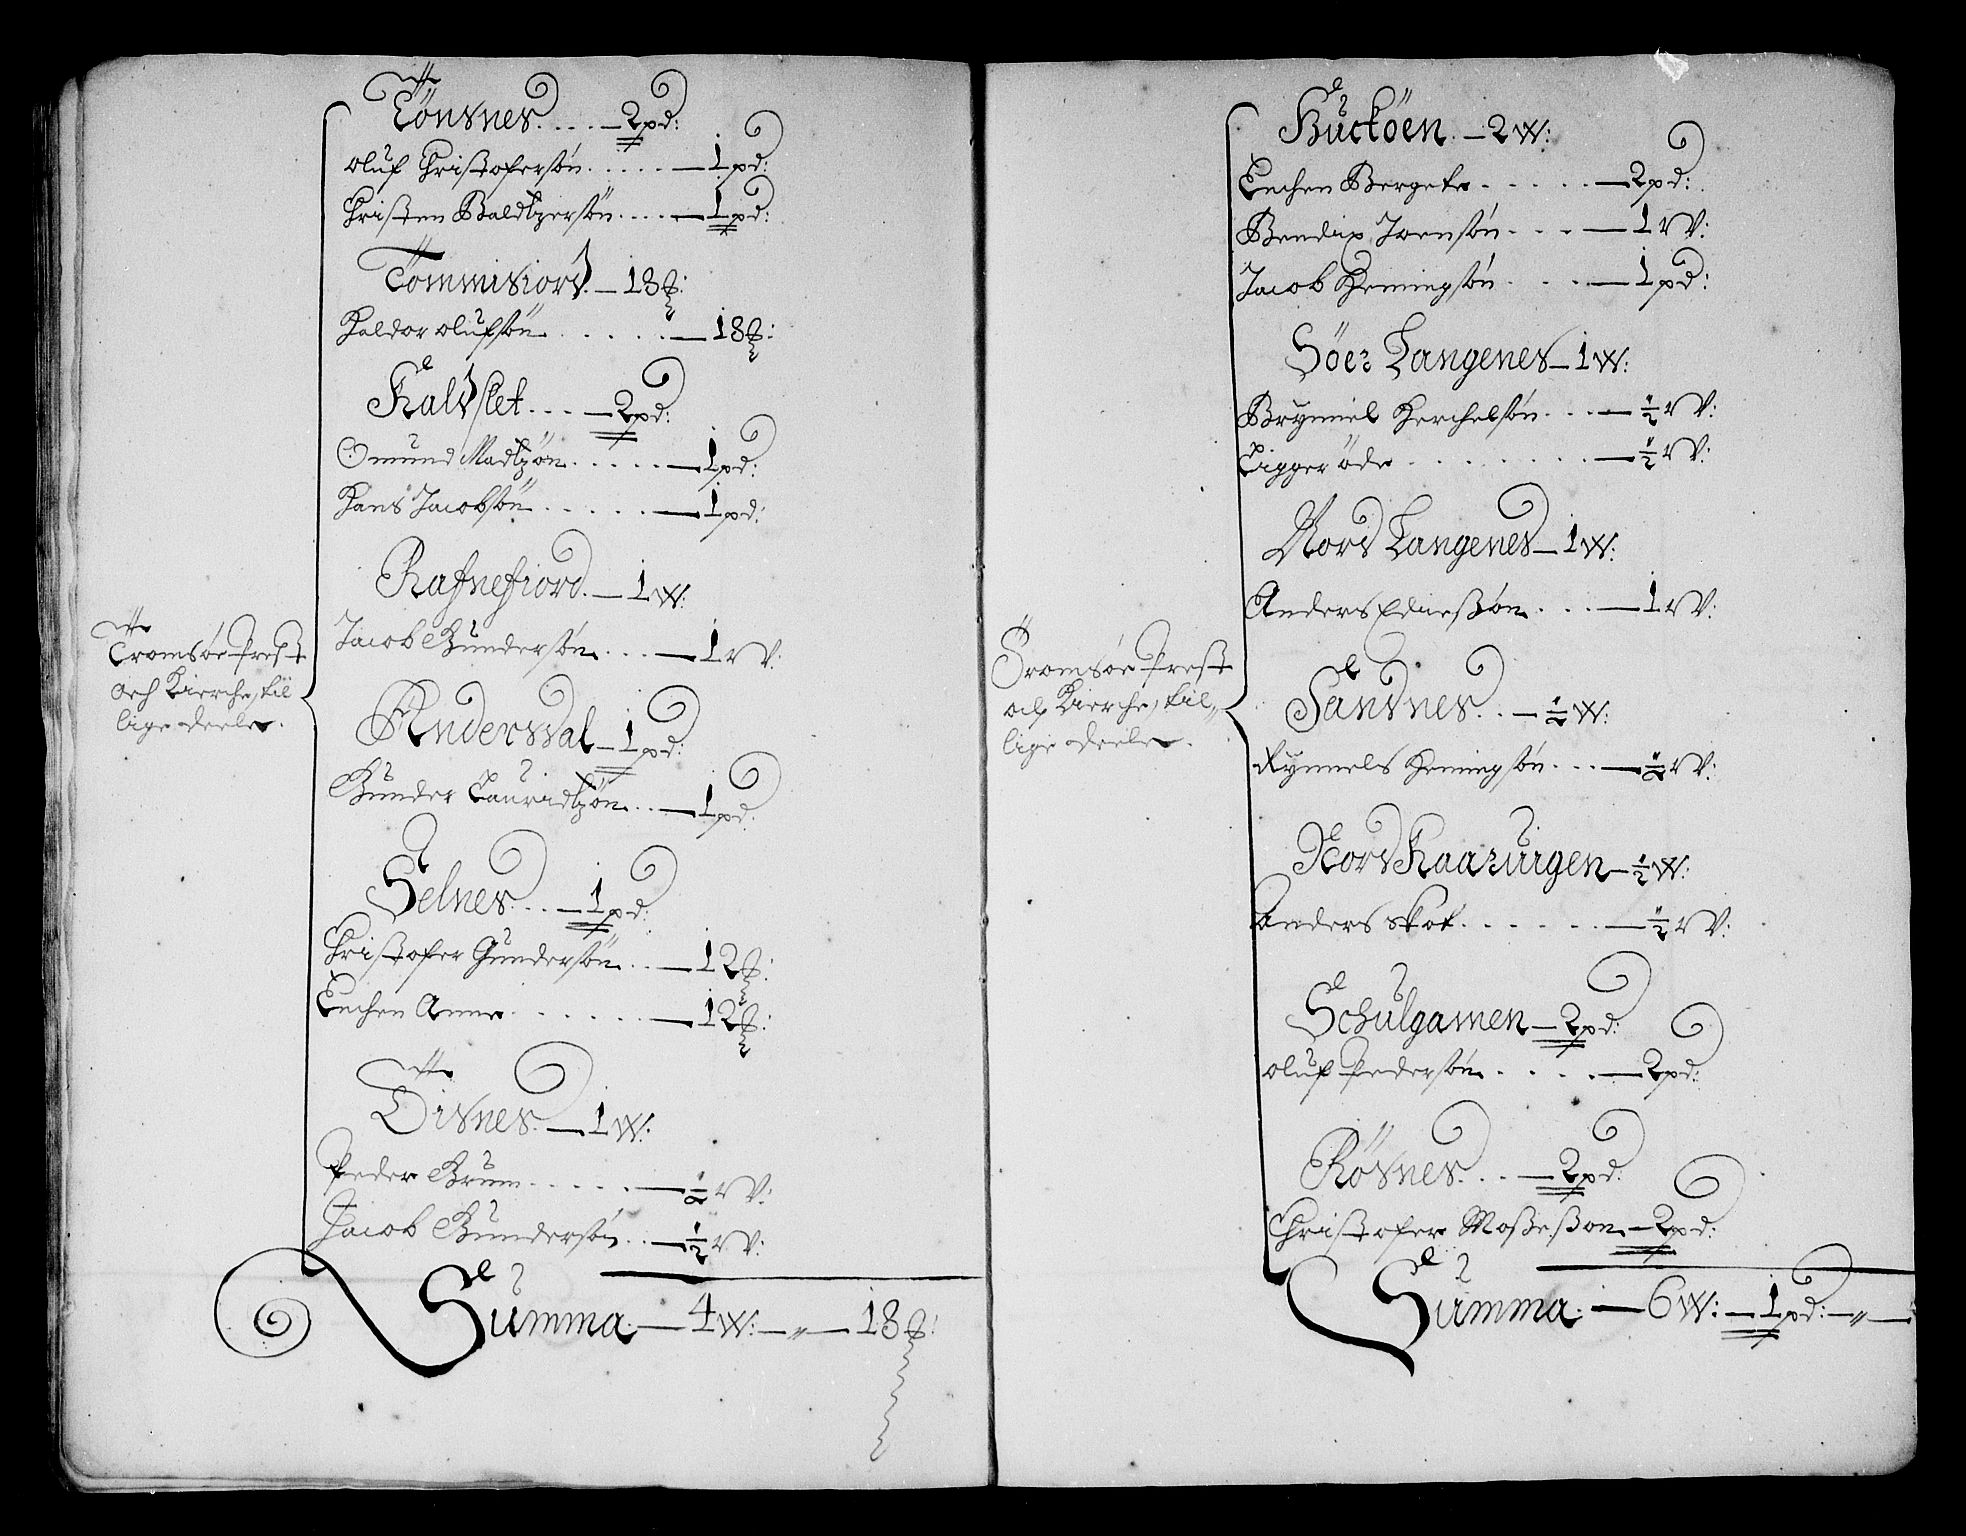 Tönsnes. . . . — 2 pd:
Oluf Christofersön. . . . . — 1 pd:
Christen Baldtzersön. . . . — 1 pd:
Tömmisiord. — 18 ℔:
Haldor olufsön. . . . . . — 18 ℔:
Kaldslet. . . . — 2 pd:
Omund Madtzön. . . . . — 1 pd:
Hans Jacobsön. . . . . . — 1 pd:
Rafnefiord. — 1 W:
Jacob Gundersön. . . . — 1 W:
Andersdal — 1 pd:
Gunder Lauridtzön. . . — 1 pd:
Selnes. . . — 1 pd:
Christofer Gundersön. . . — 12 ℔:
Enchen Anne. . . . . . . — 12 ℔:
Öisnes. — 1 W:
Peder Brun. . . . . . — ½ W:
Jacob Gundersön. . . — ½ W:
Tromsöe Prest
och Kierche, til
lige deele.
Summa. — 4 W: — „ — 18 ℔:
Buctöen. — 2 W:
Enchen Bergete. . . . . . — 2 pd:
Bendix Joensön. . . . — 1 W:
Jacob Hemingsön. . . . — 1 pd:
Söer Langenes — 1 W:
Brynniel Kerchelsön. . . . — ½ W:
Ligger öde. . . . . . . . — ½ W:
Nord Langenes — 1 W:
Anders Ediesßön. . . . — 1 W:
Sandnes. . — ½ W:
Rynnels Hemingsön. . . . — ½ W:
Nord Kaarvigen — ½ W:
Anders Skot. . . . . . . — ½ W:
Schulgamen — 2 pd:
Oluf Pedersön. . . . . — 2 pd:
Rösnes. . . — 2 pd:
Christofer Moßeßon — 2 pd:
Tromsöe Prest
och Kierche, til„
lige deele.
Summa. — 6 W: — 1 pd: — „ —